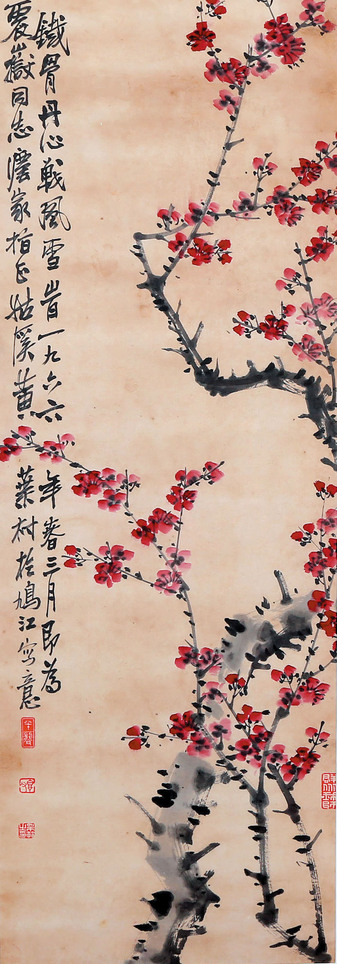 鐵骨丹心戰風雪旹一九六六年春三月即為
嶽同志灋家指正姑溪黃葉村於鳩江寫意